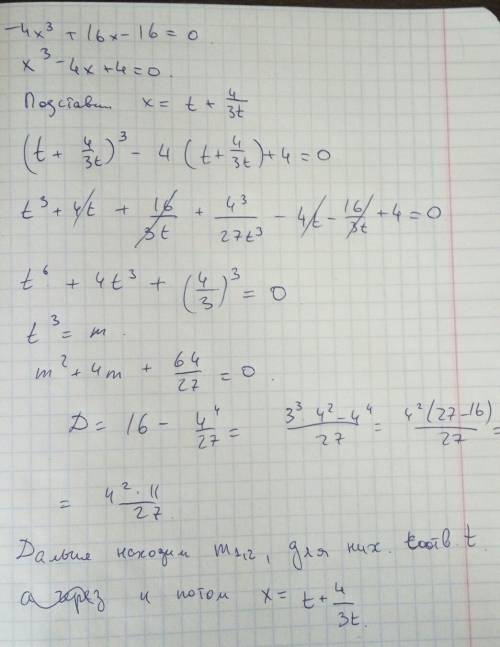 -4x³ + 16x - 16 = 0
x³ - 4x + 4 = 0.
Подставим x = t + 4/3t
(t + 4/3t)³ - 4 (t + 4/3t) + 4 = 0
t³ + 4t + 16/3t + 4³/27t³ - 4t - 16/3t + 4 = 0
t⁶ + 4t³ + (4/3)³ = 0
t³ = m.
m² + 4m + 64/27 = 0.
D = 16 - 4⁴/27 = 3³ 4² - 4⁴/27 = 4² (27 - 16)/27 =
= 4² · 11/27.
Дальше находим m₁,₂, для них t.
а через и потом x = t + 4/3t.